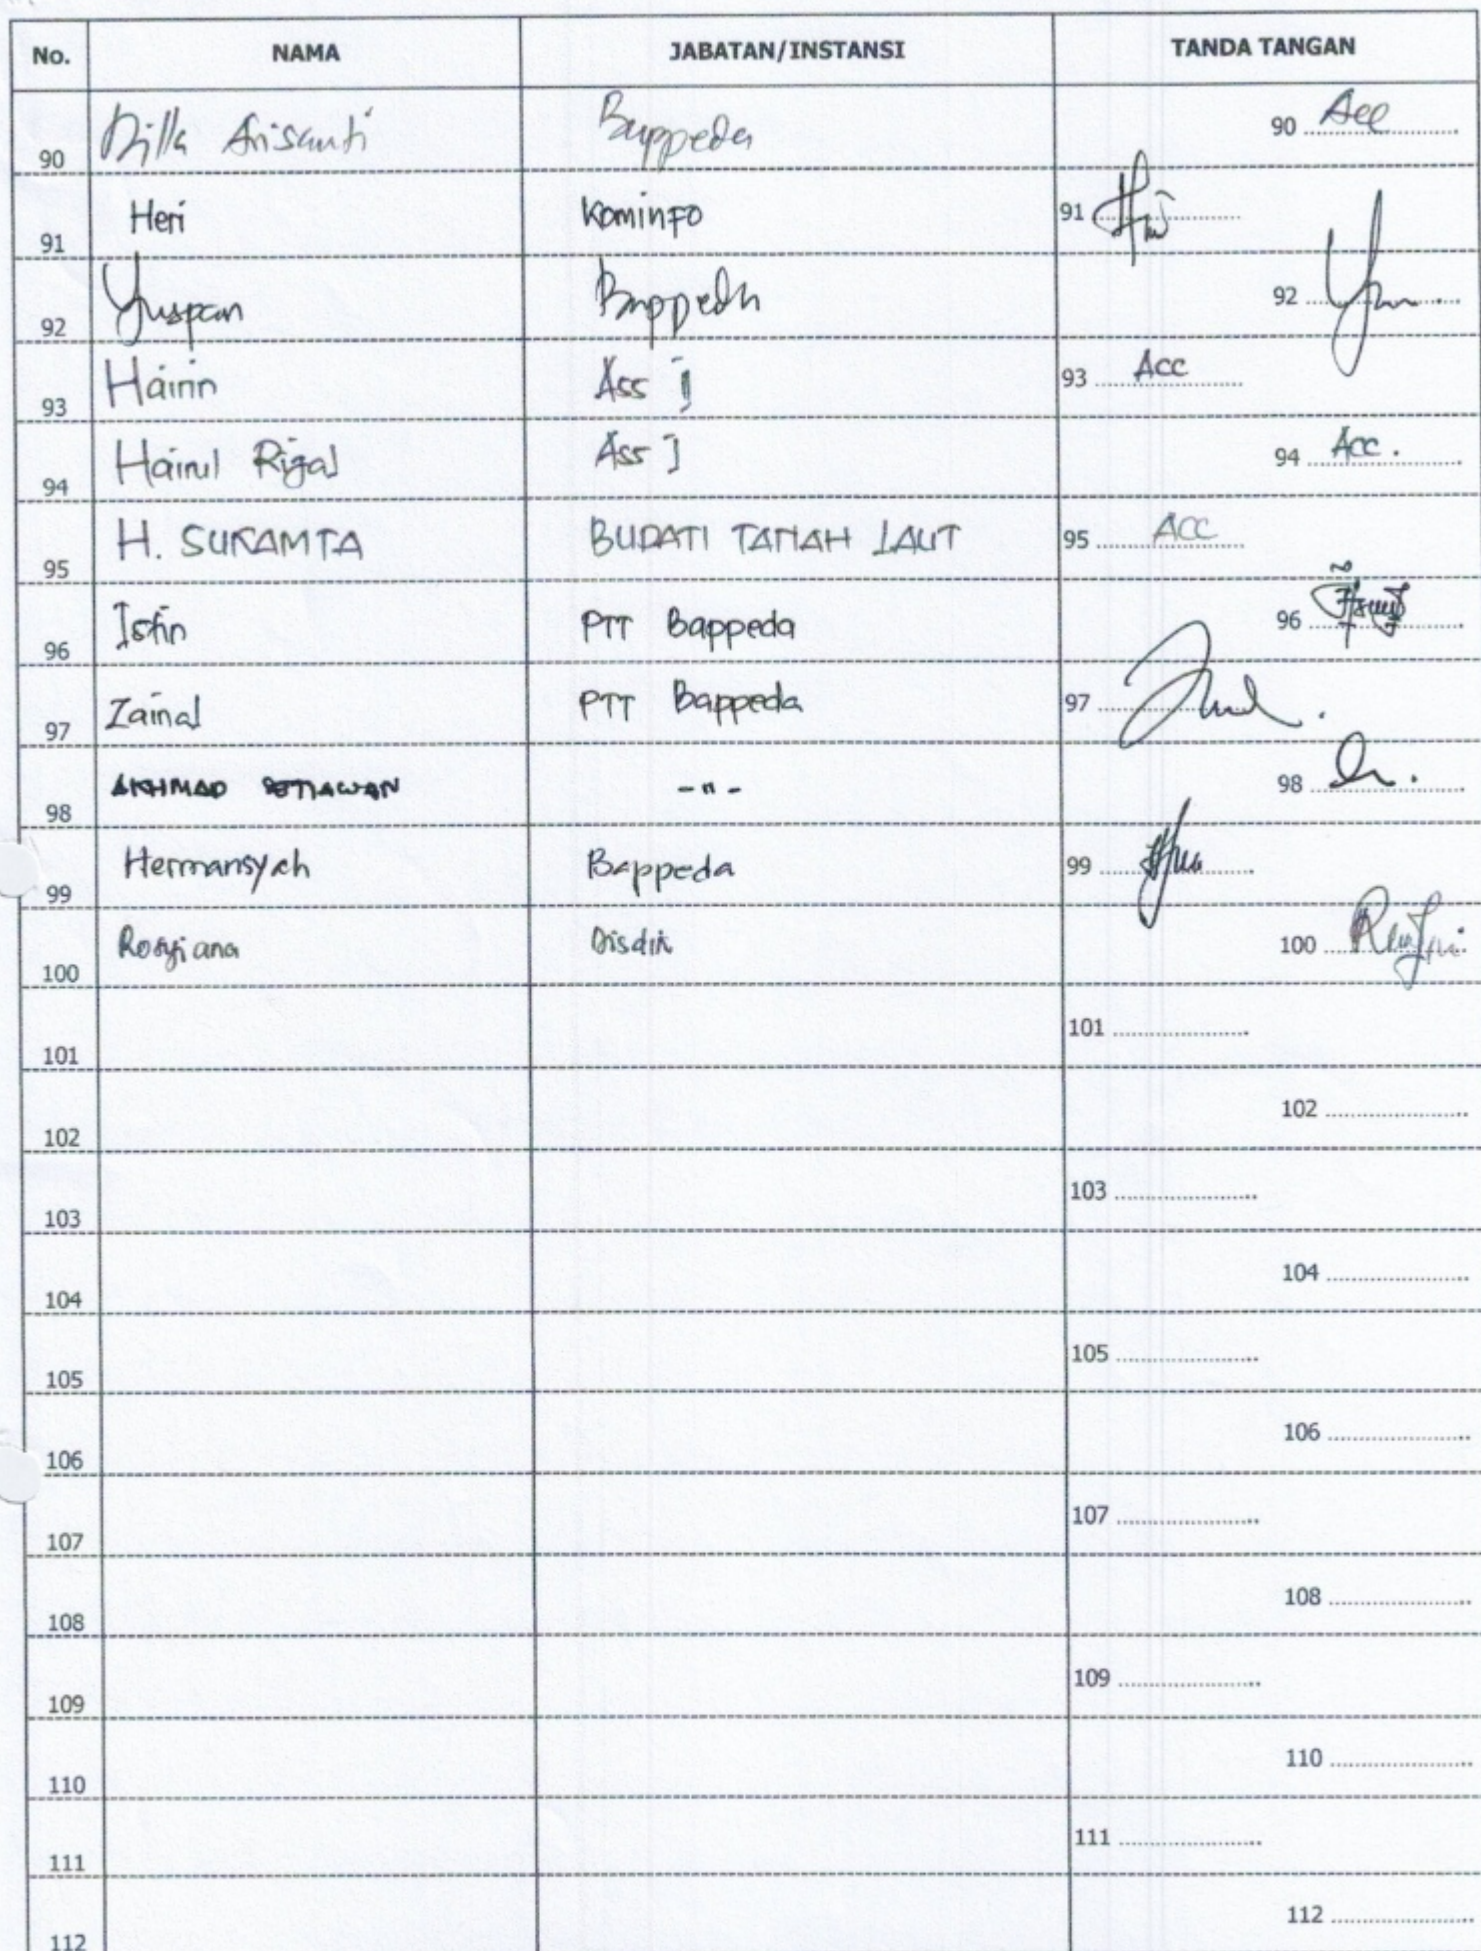 No. NAMA JABATAN/INSTANSI TANDA TANGAN
90 Dilla Arisanti Bappeda 90 Acc
91 Heri Kominfo 91
92 Yuspan Bappeda 92
93 Hairin Ass j 93 Acc
94 Hairul Rijal Ass j 94 Acc.
95 H. SUKAMTA BUPATI TANAH LAUT 95 ACC
96 Istin PTT Bappeda 96
97 Zainal PTT Bappeda 97
98 AKHMAD SETIAWAN -"- 98
99 Hermansyah Bappeda 99
100 Disdik 100
101 101
102 102
103 103
104 104
105 105
106 106
107 107
108 108
109 109
110 110
111 111
112 112